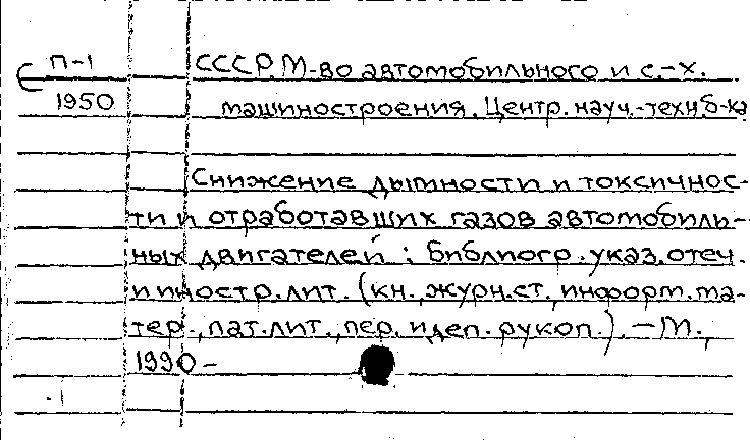 П-1 СССР. М-во автомобильного и с.-х.
1950 машиностроения. Центр. науч.-техн. б-ка
Снижение дымности и токсичнос-
ти и отработавших газов автомобиль-
ных двигателей : библиогр. указ. отеч.
и иностр. лит. (кн., журн. ст., информ. ма-
тер., пат. лит., пер. и деп. рукоп.). – М.,
1990 –